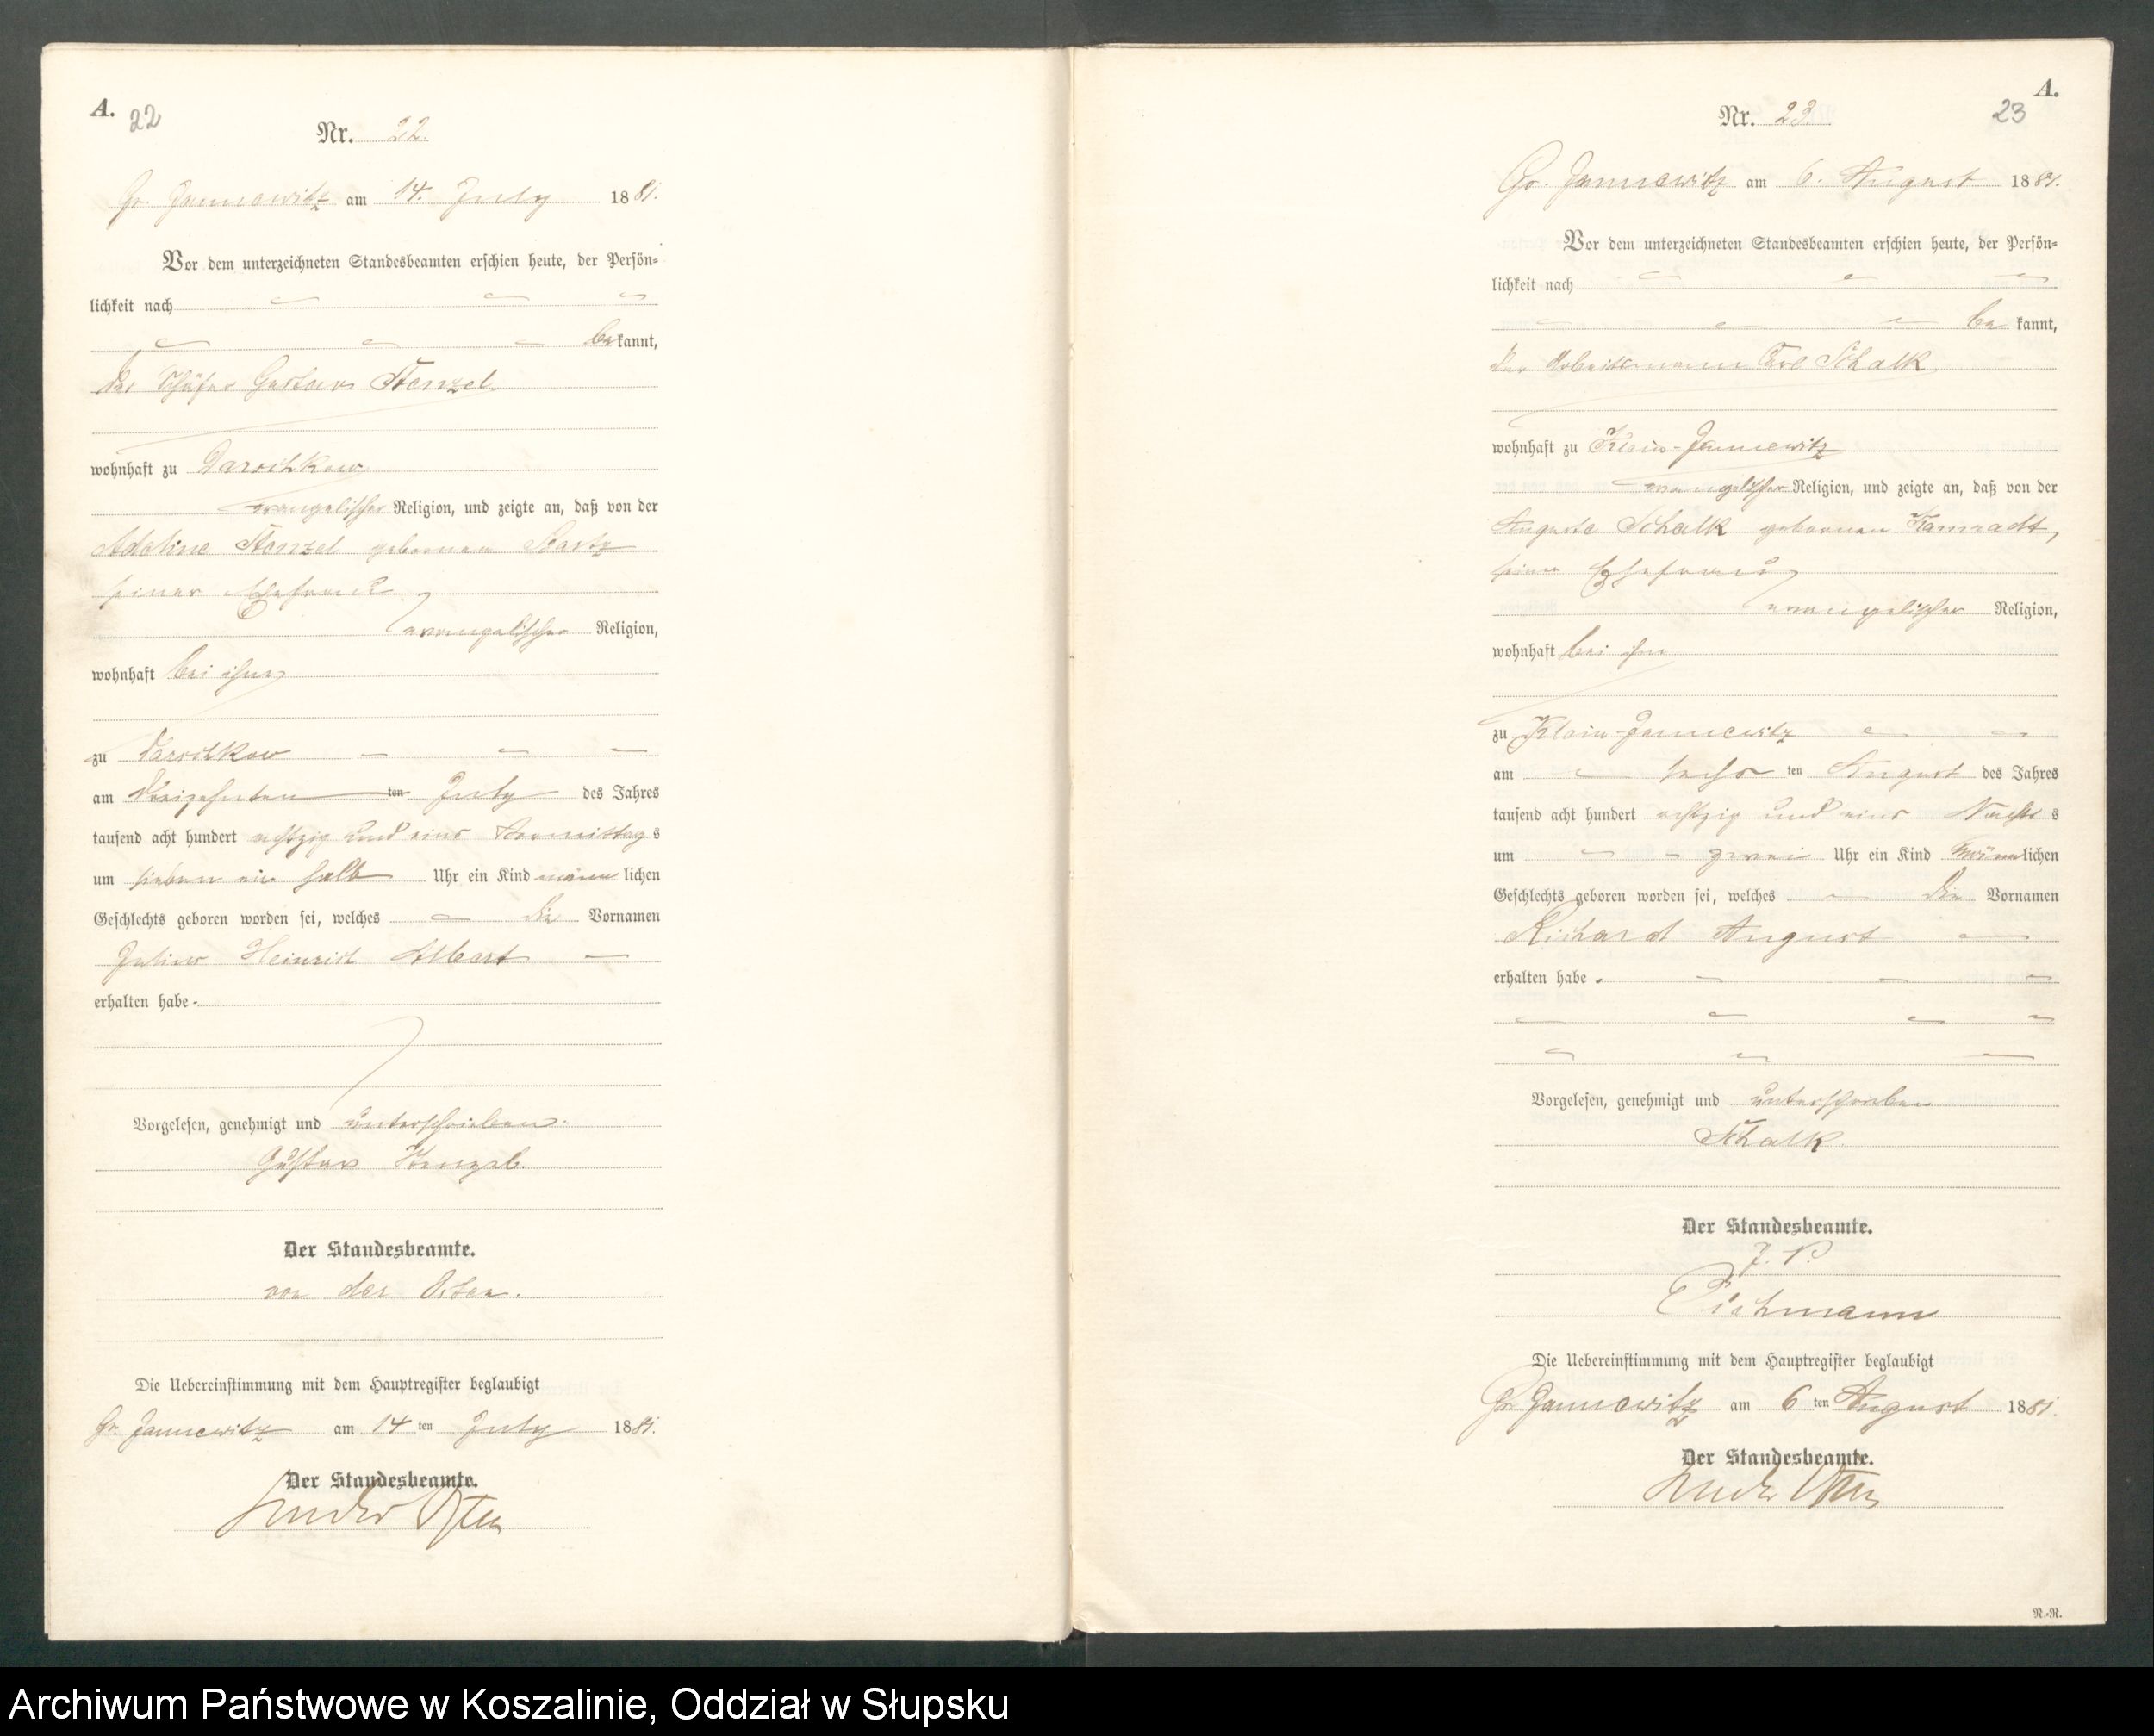 A.
22
Nr. 22.
Gr. Jannewitz am 14. July 1881.
Vor dem unterzeichneten Standesbeamten erschien heute, der Persön-
lichkeit nach
bekannt,
der Schäfer Gustav Stenzel
wohnhaft zu Darschkow
evangelischer Religion, und zeigte an, daß von der
Adeline Stenzel geborenen
seiner Ehefrau
evangelischer Religion,
wohnhaft bei ihm
zu Darschkow
am Dreizehnten ten July des Jahres
tausend acht hundert achtzig und eins Vormittags
um sieben ein halb Uhr ein Kind männlichen
Geschlechts geboren worden sei, welches die Vornamen
Julius Heinrich Albert
erhalten habe.
Vorgelesen, genehmigt und unterschrieben.
Gustav Stenzel.
Der Standesbeamte.
von der Osten.
Die Uebereinstimmung mit dem Hauptregister beglaubigt
Gr. Jannewitz am 14 ten July 1881.
Der Standesbeamte.
von der Osten
A.
23
Nr. 23.
Gr. Jannewitz am 6. August 1881.
Vor dem unterzeichneten Standesbeamten erschien heute, der Persön-
lichkeit nach
bekannt,
der Arbeitsmann Carl Schalk
wohnhaft zu Klein-Jannewitz
evangelischer Religion, und zeigte an, daß von der
Auguste Schalk geborenen Kamradt,
seiner Ehefrau
evangelischer Religion,
wohnhaft bei ihm
zu Klein-Jannewitz
am sechs ten August des Jahres
tausend acht hundert achtzig und eins Nachts
um zwei Uhr ein Kind männlichen
Geschlechts geboren worden sei, welches die Vornamen
Richard August
erhalten habe.
Vorgelesen, genehmigt und unterschrieben
Schalk
Der Standesbeamte.
J. V.
Pichmann
Die Uebereinstimmung mit dem Hauptregister beglaubigt
Gr. Jannewitz am 6 ten August 1881.
Der Standesbeamte.
von der Osten
N.-R.
Archiwum Państwowe w Koszalinie, Oddział w Słupsku